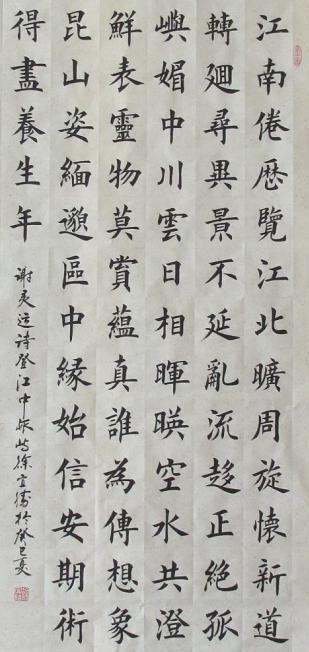 江南倦歷覽江北曠周旋懷新道
轉廻尋異景不延亂流趍正絕孤
嶼媚中川雲日相暉暎空水共澄
鮮表靈物莫賞蘊真誰為傳想象
昆山姿緬邈區中緣始信安期術
得盡養生年
谢灵运詩登江中孤屿徐於癸巳夏